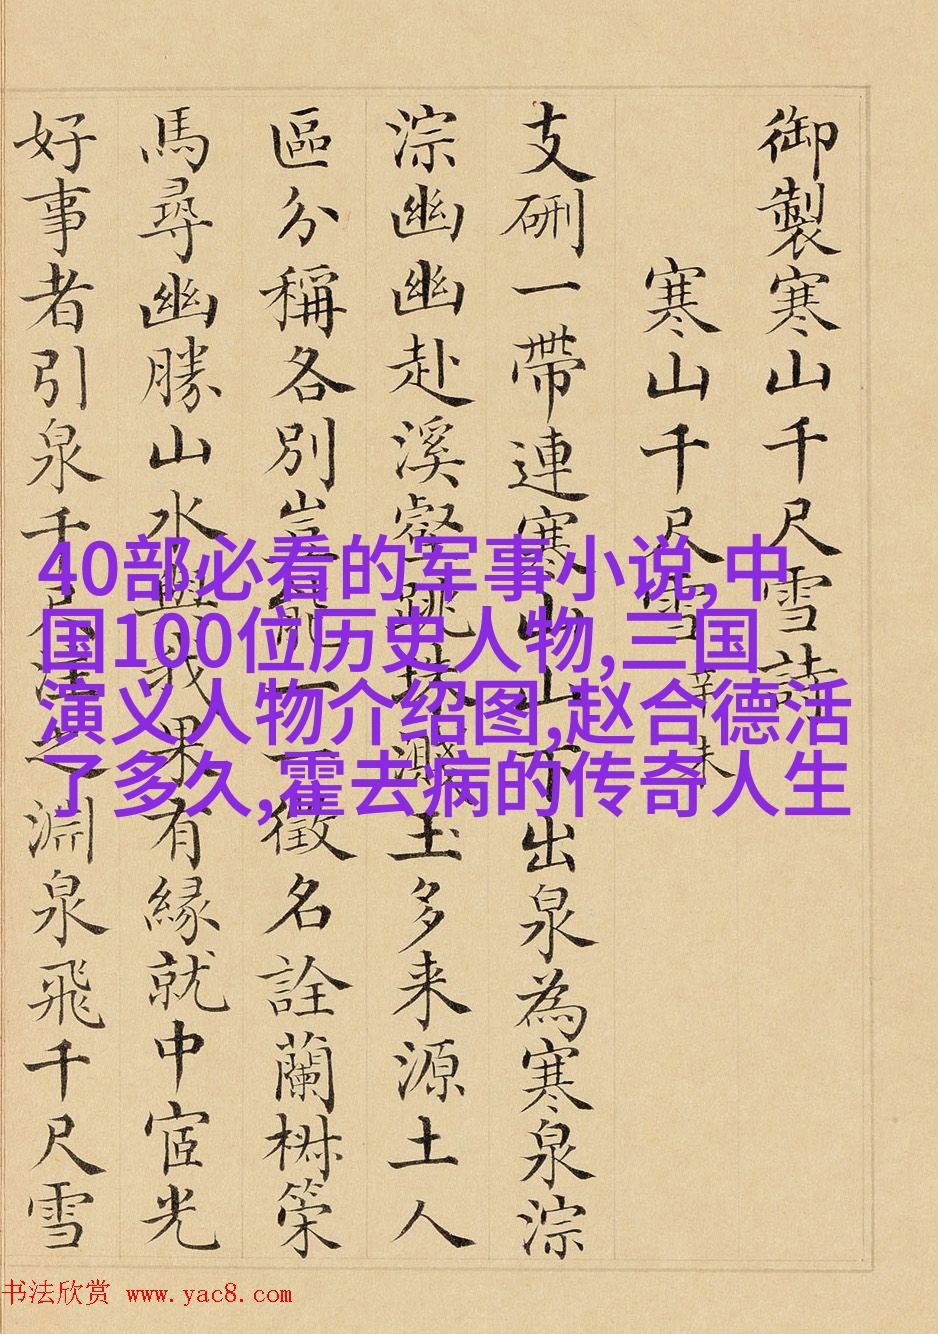 御製寒山千尺雪詩
寒山千尺雪 辛未
支硎一帶連寒山山下出泉為寒泉淙
淙幽幽赴溪壑跳珠濺玉多来源土人
區分稱各別豈能一一徵名詮蘭椒策
馬尋幽勝山水與我果有緣就中宧光
好事者引泉千尺注之淵泉飛千尺雪
40部必看的军事小说,中
国100位历史人物,三国
演义人物介绍图,赵合德活
了多久,霍去病的传奇人生
书法欣赏 www.yac8.com